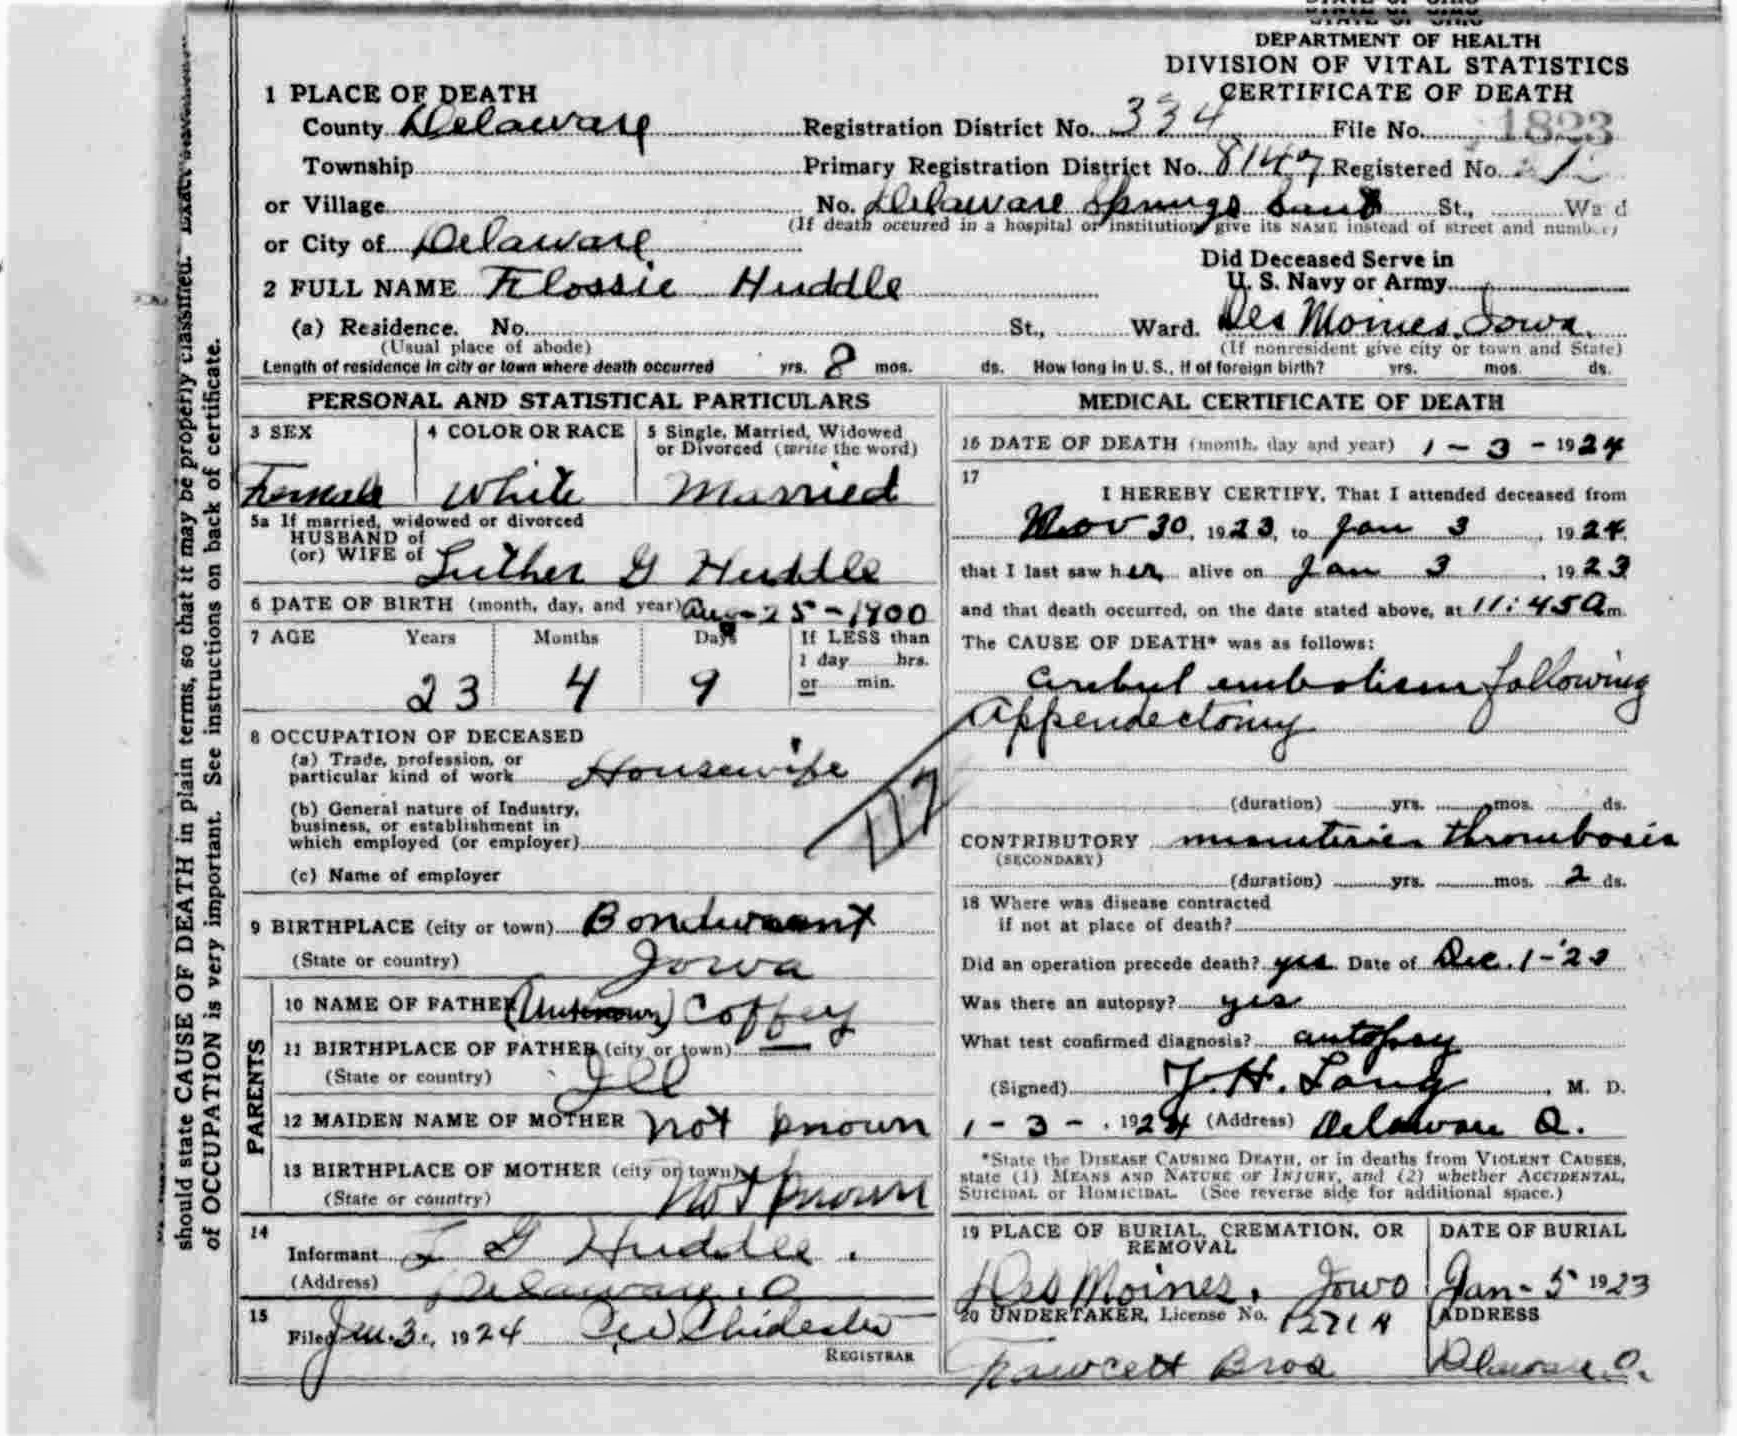 DEPARTMENT OF HEALTH
DIVISION OF VITAL STATISTICS
CERTIFICATE OF DEATH
1 PLACE OF DEATH
County Delaware Registration District No. 334 File No. 1823
Township Primary Registration District No. 8147 Registered No. 1
or Village No. Delaware Springs St., Ward
(If death occured in a hospital or institution, give its NAME instead of street and number)
or City of Delaware
Did Deceased Serve in
U. S. Navy or Army
2 FULL NAME Flossie Huddle
(a) Residence. No. St., Ward. Des Moines, Iowa.
(Usual place of abode) (If nonresident give city or town and State)
Length of residence in city or town where death occurred yrs. 8 mos. ds. How long in U. S., if of foreign birth? yrs. mos. ds.
PERSONAL AND STATISTICAL PARTICULARS
3 SEX 4 COLOR OR RACE 5 Single, Married, Widowed
or Divorced (write the word)
Female White Married
5a If married, widowed or divorced
HUSBAND of
(or) WIFE of Luther G Huddle
6 DATE OF BIRTH (month, day, and year) Aug-25-1900
7 AGE Years Months Days If LESS than
1 day hrs.
23 4 9 or min.
8 OCCUPATION OF DECEASED
(a) Trade, profession, or
particular kind of work Housewife
(b) General nature of Industry,
business, or establishment in
which employed (or employer)
(c) Name of employer
117
9 BIRTHPLACE (city or town) Bondurant
(State or country) Iowa
PARENTS
10 NAME OF FATHER (Unknown) Coffey
11 BIRTHPLACE OF FATHER (city or town)
(State or country) Ill
12 MAIDEN NAME OF MOTHER not known
13 BIRTHPLACE OF MOTHER (city or town)
(State or country) Not known
14
Informant L G Huddle.
(Address) Delaware, O
15
Filed Jan. 3, 1924 Chidester
REGISTRAR
MEDICAL CERTIFICATE OF DEATH
16 DATE OF DEATH (month, day and year) 1 - 3 - 1924
17
I HEREBY CERTIFY, That I attended deceased from
Nov 30, 1923, to Jan 3, 1924
that I last saw her alive on Jan 3, 1923
and that death occurred, on the date stated above, at 11:45 a m.
The CAUSE OF DEATH* was as follows:
embolism following
Appendectomy
(duration) yrs. mos. ds.
CONTRIBUTORY thrombosis
(SECONDARY)
(duration) yrs. mos. 2 ds.
18 Where was disease contracted
if not at place of death?
Did an operation precede death? yes Date of Dec. 1-'23
Was there an autopsy? yes
What test confirmed diagnosis? autopsy
(Signed) M. D.
1 - 3 - , 1924 (Address) Delaware O.
*State the DISEASE CAUSING DEATH, or in deaths from VIOLENT CAUSES,
state (1) MEANS AND NATURE OF INJURY, and (2) whether ACCIDENTAL,
SUICIDAL or HOMICIDAL. (See reverse side for additional space.)
19 PLACE OF BURIAL, CREMATION, OR
REMOVAL
DATE OF BURIAL
Des Moines, Iowa Jan - 5 1923
20 UNDERTAKER, License No. ADDRESS
Fawcett Bros Delaware O.
should state CAUSE OF DEATH in plain terms, so that it may be properly classified.
of OCCUPATION is very important. See instructions on back of certificate.